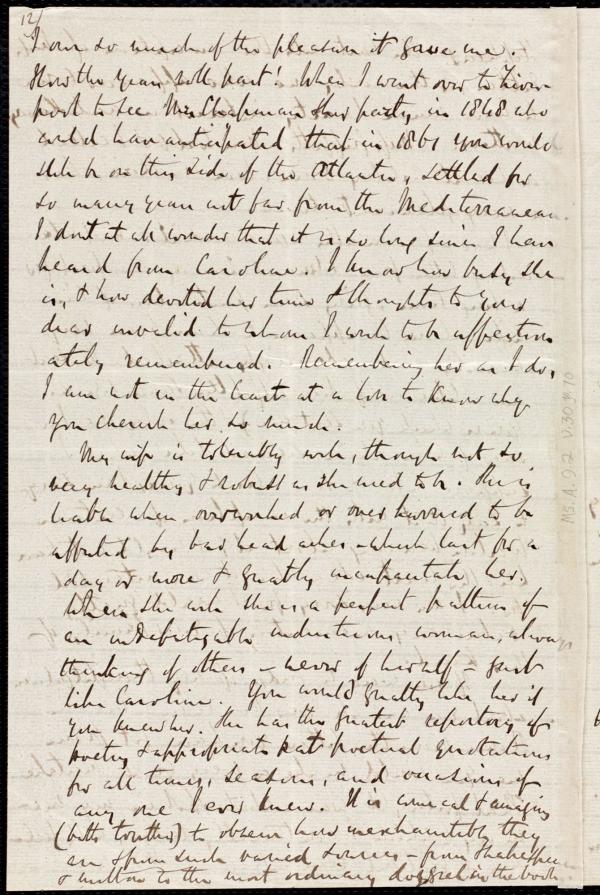 12/
I owe so much of the pleasure it gave me.
How the years roll past! When I went over to Liver-
pool to see Mrs Chapman & her party, in 1848 who
could have anticipated that in 1861 you would
still be on this side of the Atlantic, settled for
so many years not far from the Mediterranean.
I don't at all wonder that it is so long since I have
heard from Caroline. I know how busy she
is, & how devoted her time & thoughts to your
dear invalid to whom I wish to be affection
ately remembered. Remembering her as I do,
I am not in the least at a loss to know why
you cherish her so much.
My wife is tolerably well, though not so
very healthy & robust as she used to be. She is
liable when overworked or over hurried to be
affected by bad head aches - which last for a
day or more & greatly incapacitate her.
When she is well she is a perfect pattern of
an indefatigable industrious woman, always
thinking of others - never of herself - just
like Caroline. You would greatly like her if
you knew her. She has the greatest repertory of
poetry & appropriate poetical quotations
for all times, seasons, and occasions of
any one I ever knew. It is comical & amazing
(both together) to observe how inexhaustible they
are & from such varied sources - from Shakespeare
& Milton to the most ordinary doggrel in the book
Ms. A. 9.2 v. 30 p. 70